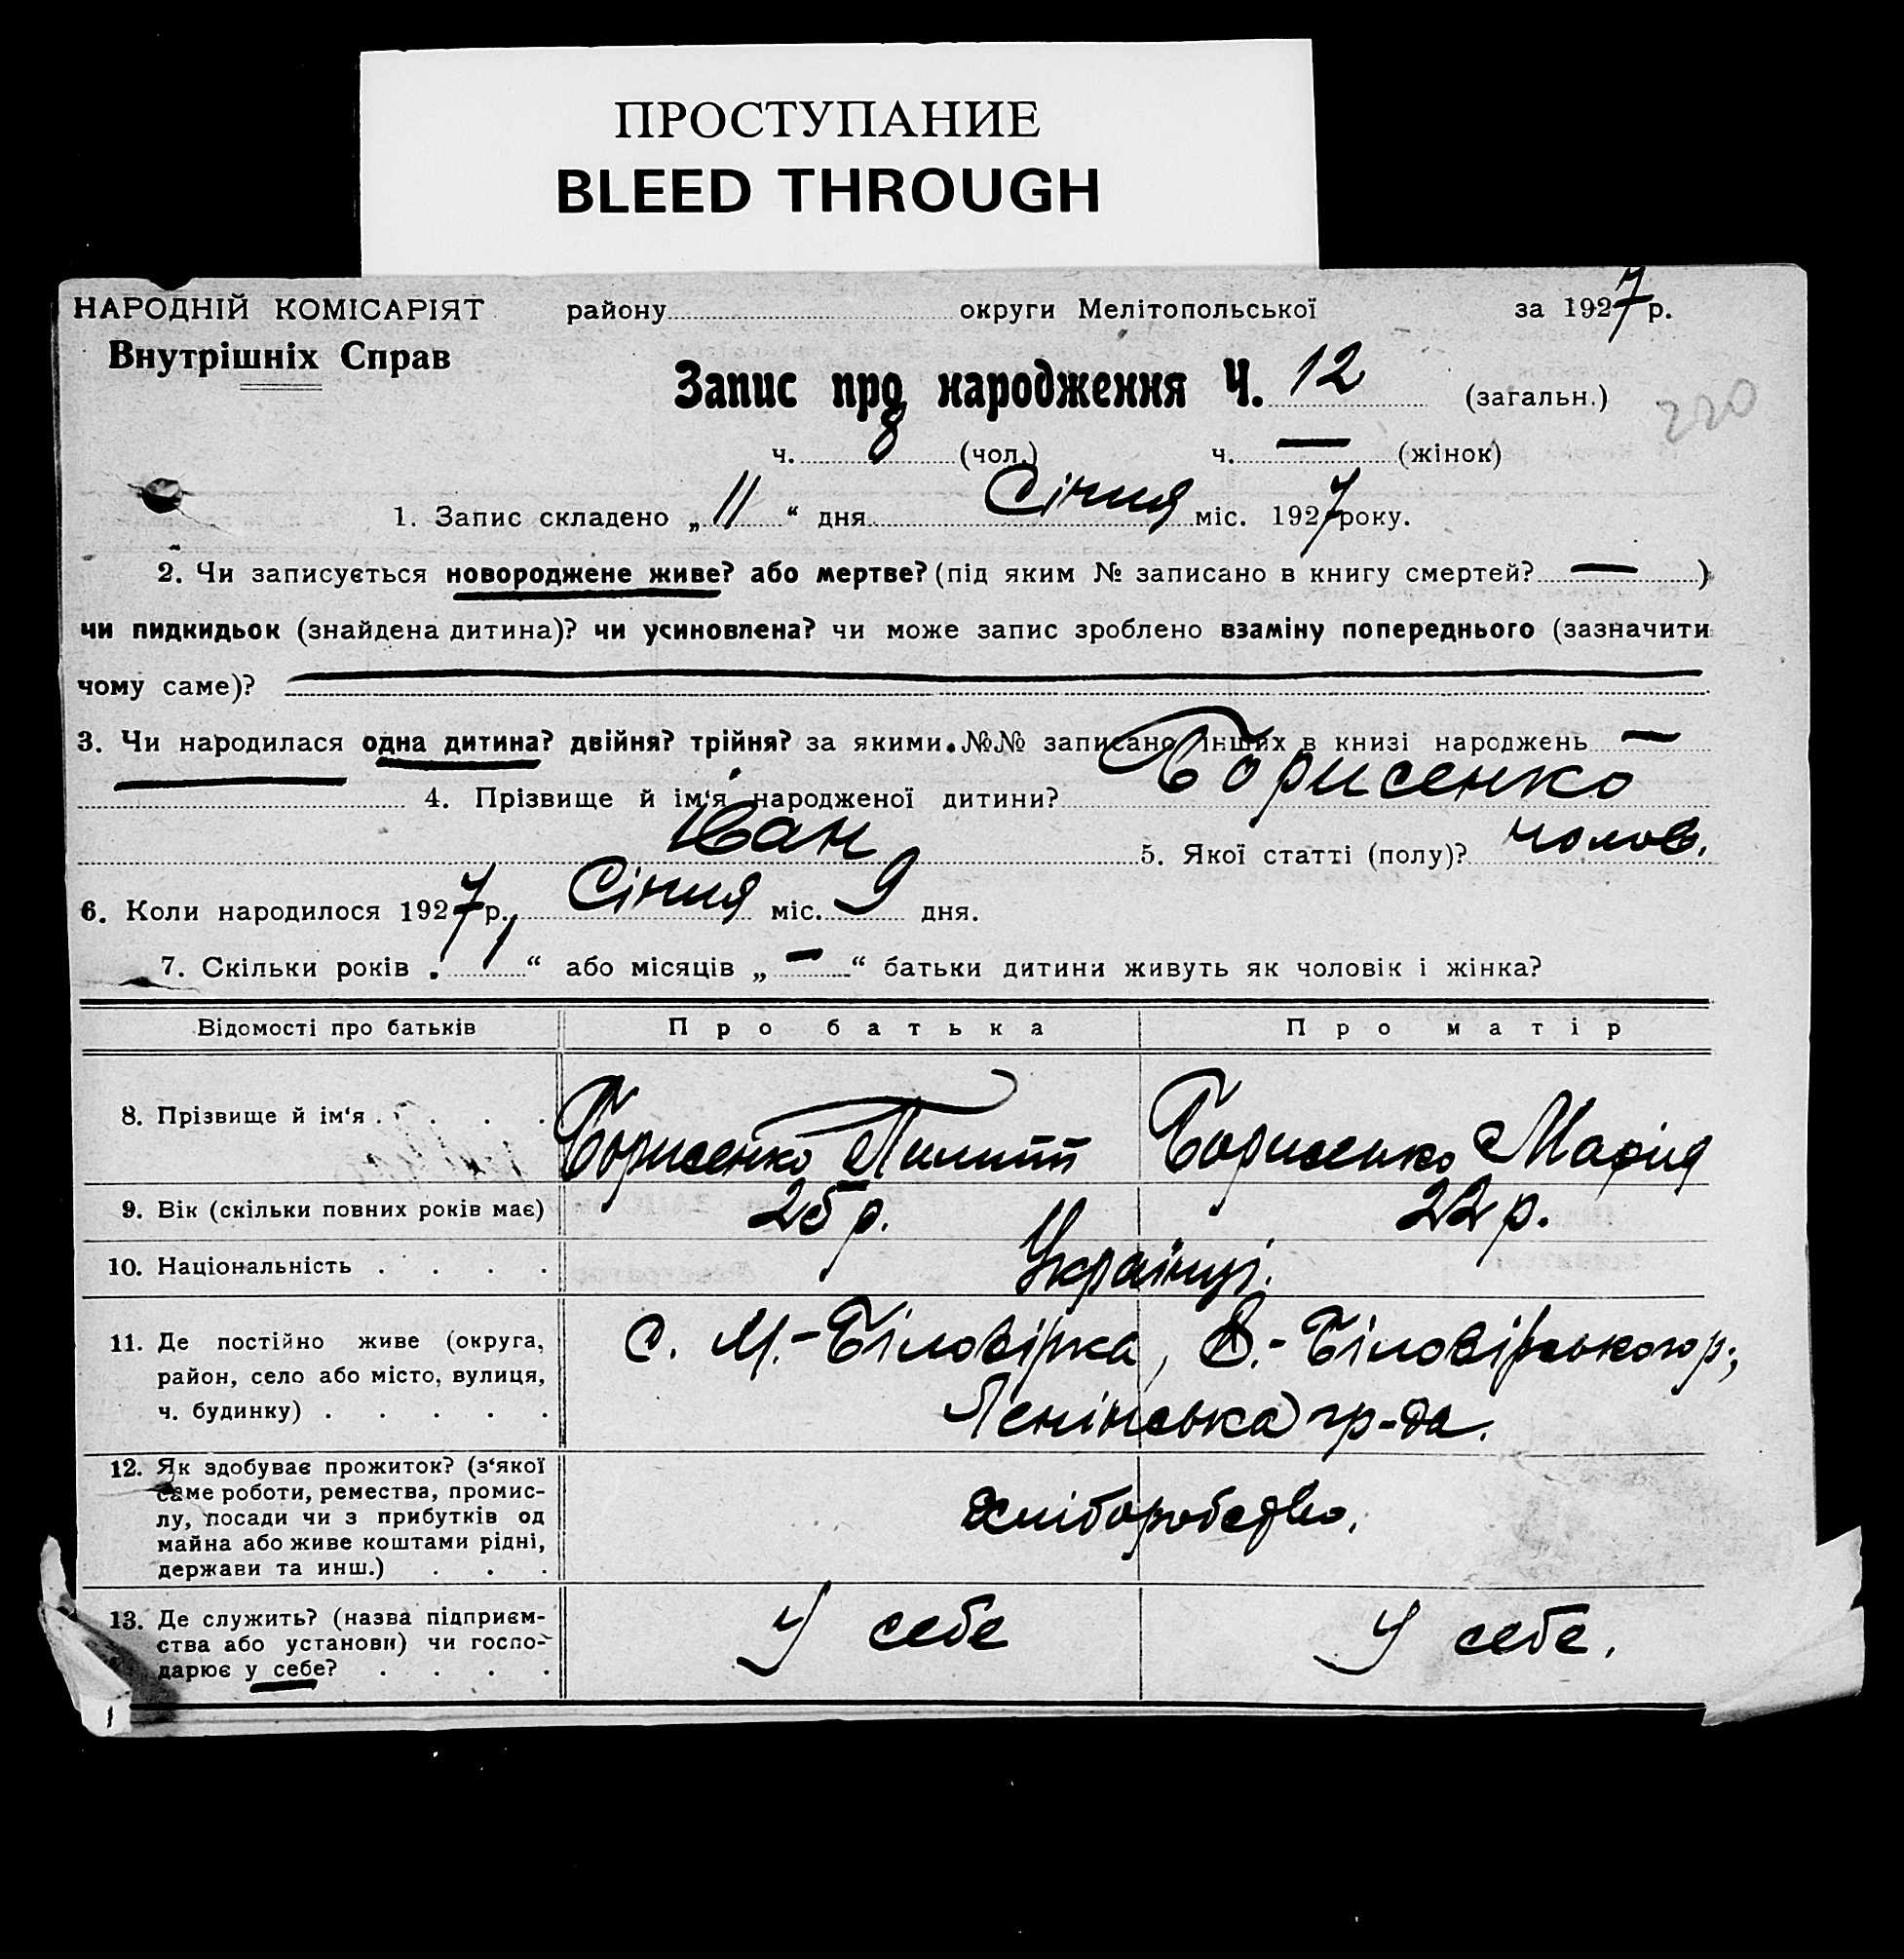 ПРОСТУПАНИЕ
BLEED THROUGH
НАРОДНІЙ КОМІСАРІЯТ району округи Мелітопольської за 1927 р.
Внутрішніх Справ
Запис про народження Ч. 12 (загальн.)
220
ч. 8 (чол.) ч. — (жінок)
1. Запис складено „11“ дня Січня міс. 1927 року.
2. Чи записується новороджене живе? або мертве? (під яким № записано в книгу смертей? — )
чи пидкидьок (знайдена дитина)? чи усиновлена? чи може запис зроблено взаміну попереднього (зазначити
чому саме)? —
3. Чи народилася одна дитина? двійня? трійня? за якими №№ записано інших в книзі народжень —
— 4. Прізвище й ім‘я народженої дитини? Борисенко
Іван 5. Якої статті (полу)? чолов.
6. Коли народилося 1927 р., Січня міс. 9 дня.
7. Скільки років „1“ або місяців „—“ батьки дитини живуть як чоловік і жінка?
Відомості про батьків Про батька Про матір
8. Прізвище й ім‘я . . . . Борисенко Пилипп Борисенко Марія
9. Вік (скільки повних років має) 25 р. 22 р.
10. Національність . . . . Українці.
11. Де постійно живе (округа,
район, село або місто, вулиця,
ч. будинку) . . . . .
с. М.-Біловірка, В.-Біловірського р.,
Ленінська гр-да.
12. Як здобуває прожиток? (з‘якої
саме роботи, ремества, промис-
лу, посади чи з прибутків од
майна або живе коштами рідні,
держави та инш.) . . .
Хліборобство.
13. Де служить? (назва підприєм-
ства або установи) чи госпо-
дарює у себе? . . . .
У себе У себе.